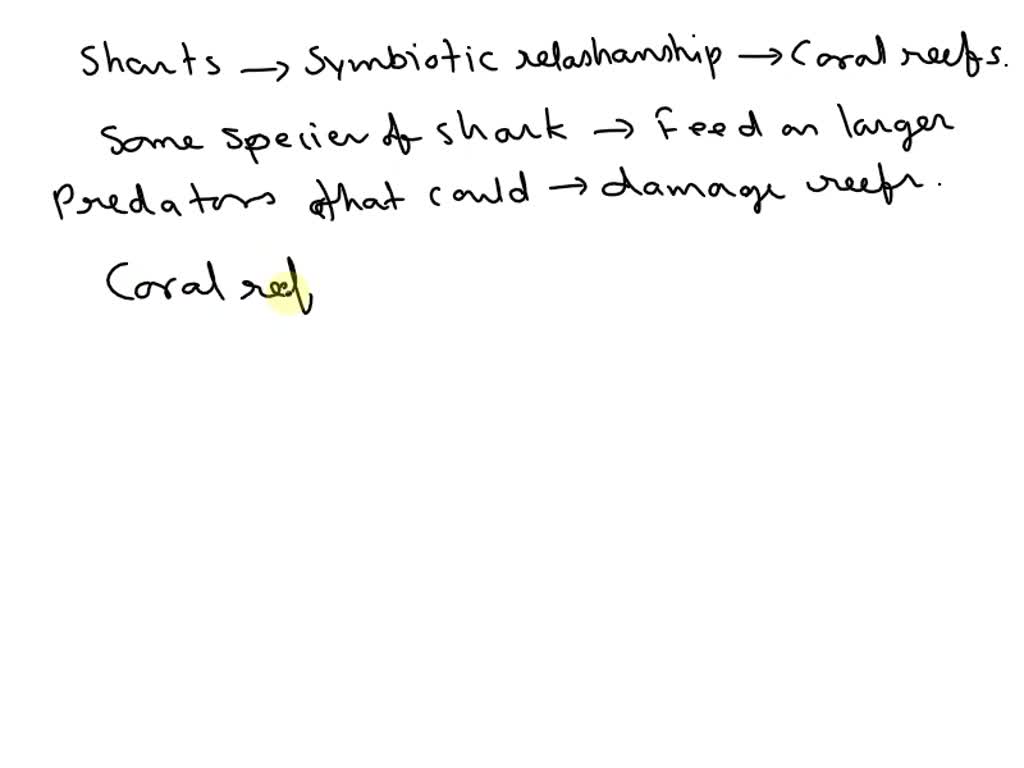 Sharks → Symbiotic relashanship → Coral reefs.
Some species of shark → Feed on larger
Predators that could → damage reefs.
Coral reef